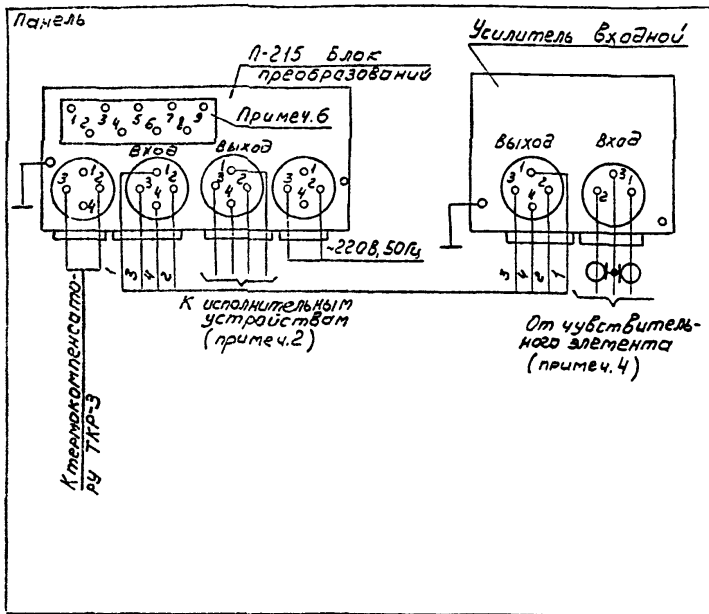 Панель
П-215 Блок
преобразований
Усилитель входной
1 2 3 4 5 6 7 8 9
Примеч.6
Вход
Выход
Выход
Вход
3 1 2 4
3 1 2 4
3 1 2 4
3 1 2 4
3 1 2 4
2 3 1
~220В, 50Гц
1 3 4 2
3 4 2 1
К исполнительным
устройствам
(примеч.2)
От чувствитель-
ного элемента
(примеч.4)
К термокомпенсато-
ру ТКР-3